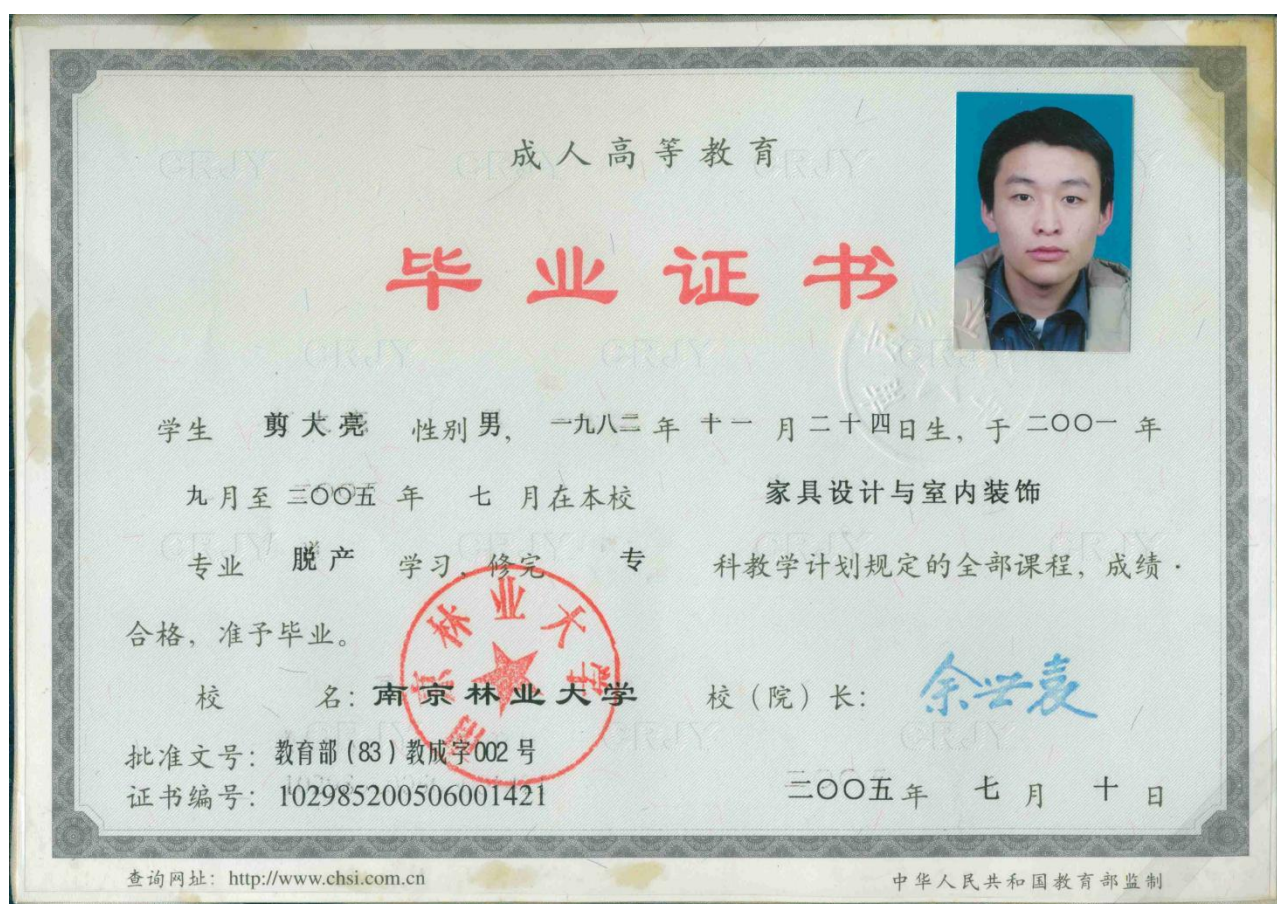 成人高等教育
毕业证书
学生 剪大亮 性别 男, 一九八二 年 十一 月 二十四 日生, 于 二〇〇一 年
九 月至 二〇〇五 年 七 月在本校 家具设计与室内装饰
专业 脱产 学习, 修完 专 科教学计划规定的全部课程, 成绩
合格, 准予毕业。
校 名: 南京林业大学 校(院)长: 余世袁
南京林业大学
批准文号: 教育部(83)教成字002号
证书编号: 102985200506001421 二〇〇五 年 七 月 十 日
查询网址: http://www.chsi.com.cn 中华人民共和国教育部监制